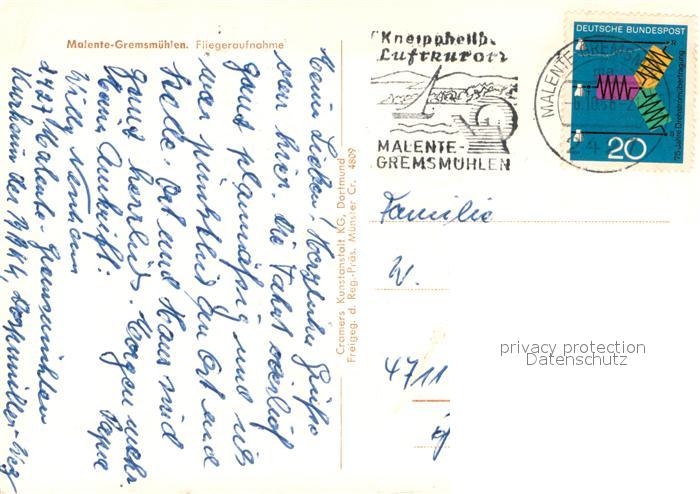 Malente-Gremsmühlen. Fliegeraufnahme
Meine Lieben! Herzliche Grüße
von hier. Die Fahrt verlief
ganz planmäßig und ich
war pünktlich am Ort und
Stelle. Ort und Haus sind
ganz herrlich. Morgen mehr.
Papa
Meine Anschrift:
Willy
2427 Malente-Gremsmühlen
Kurheim der
Cramers Kunstanstalt KG, Dortmund
Freigeg. d. Reg.-Präs. Münster Cr. 4809
Kneippheilb.
Luftkurort
MALENTE-
GREMSMÜHLEN
MALENTE-GREMSM
24
DEUTSCHE BUNDESPOST
75 Jahre Drehstromübertragung
R
20
Familie
W.
4711
privacy protection
Datenschutz